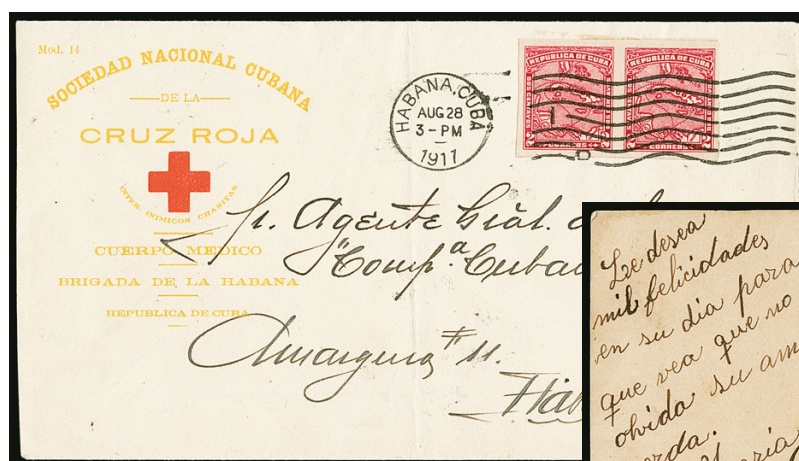 Mod. 14
SOCIEDAD NACIONAL CUBANA
DE LA
CRUZ ROJA
INTER INIMICOS CHARITAS
CUERPO MEDICO
BRIGADA DE LA HABANA
REPUBLICA DE CUBA
HABANA, CUBA
AUG 28
3-PM
1917
REPUBLICA DE CUBA
REPUBLICA DE CUBA
Sr. Agente Gral.
"Comp.ª Cuban
Amargura # 11.
Le desea
mil felicidades
en su dia para
que vea que no
olvida su am